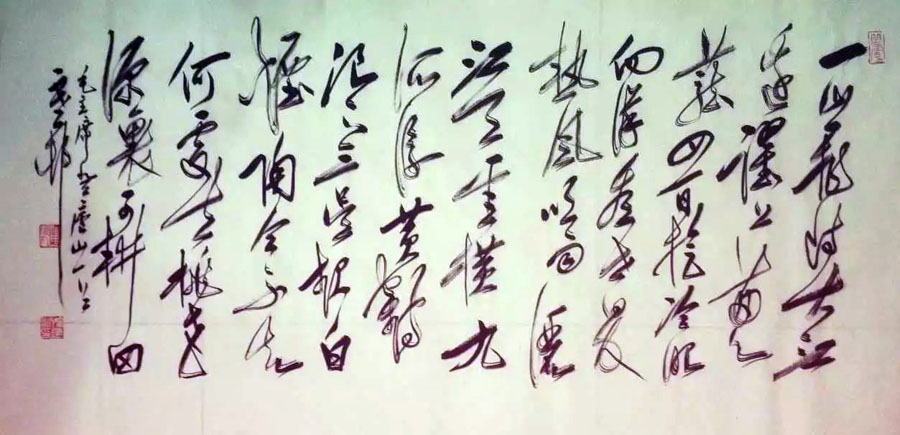 一山飛峙大江
邊躍上葱
蘢四百旋冷眼
向洋看世界
熱風吹雨灑
江天雲橫九
派浮黃鶴
浪下三吳起白
煙陶令不知
何處去桃花
源裏可耕田
毛主席登廬山一首